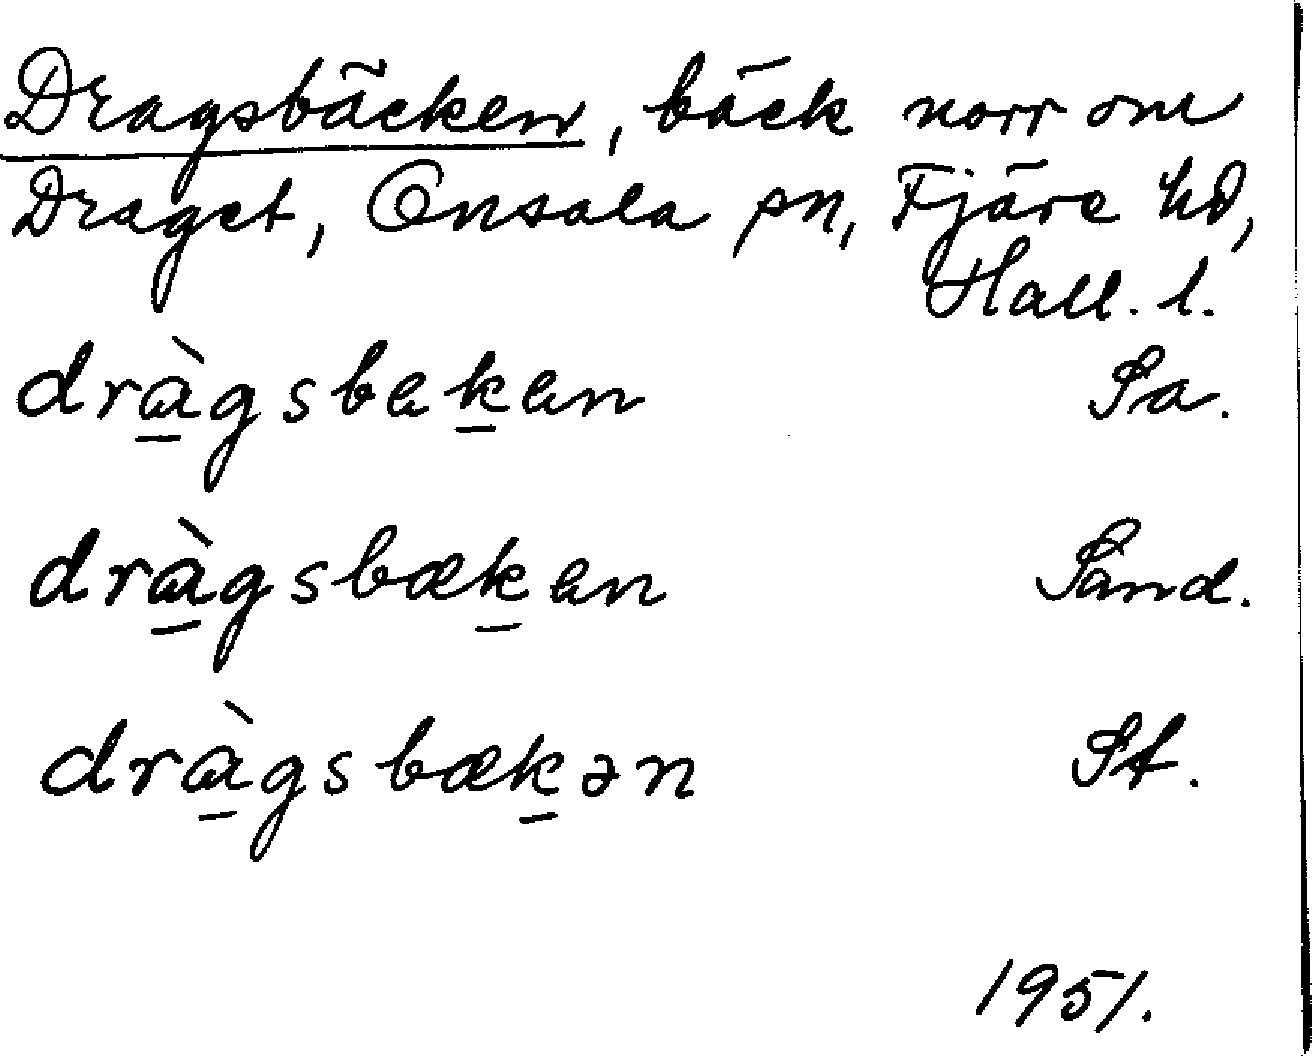 Dragsbäcken, bäck norr om
Draget, Onsala sn, Fjäre hd,
Hall. l.
drà̲gsbek̲en Sa.
drà̲gsbæk̲en Sand.
drà̲gsbæk̲ən St.
1951.